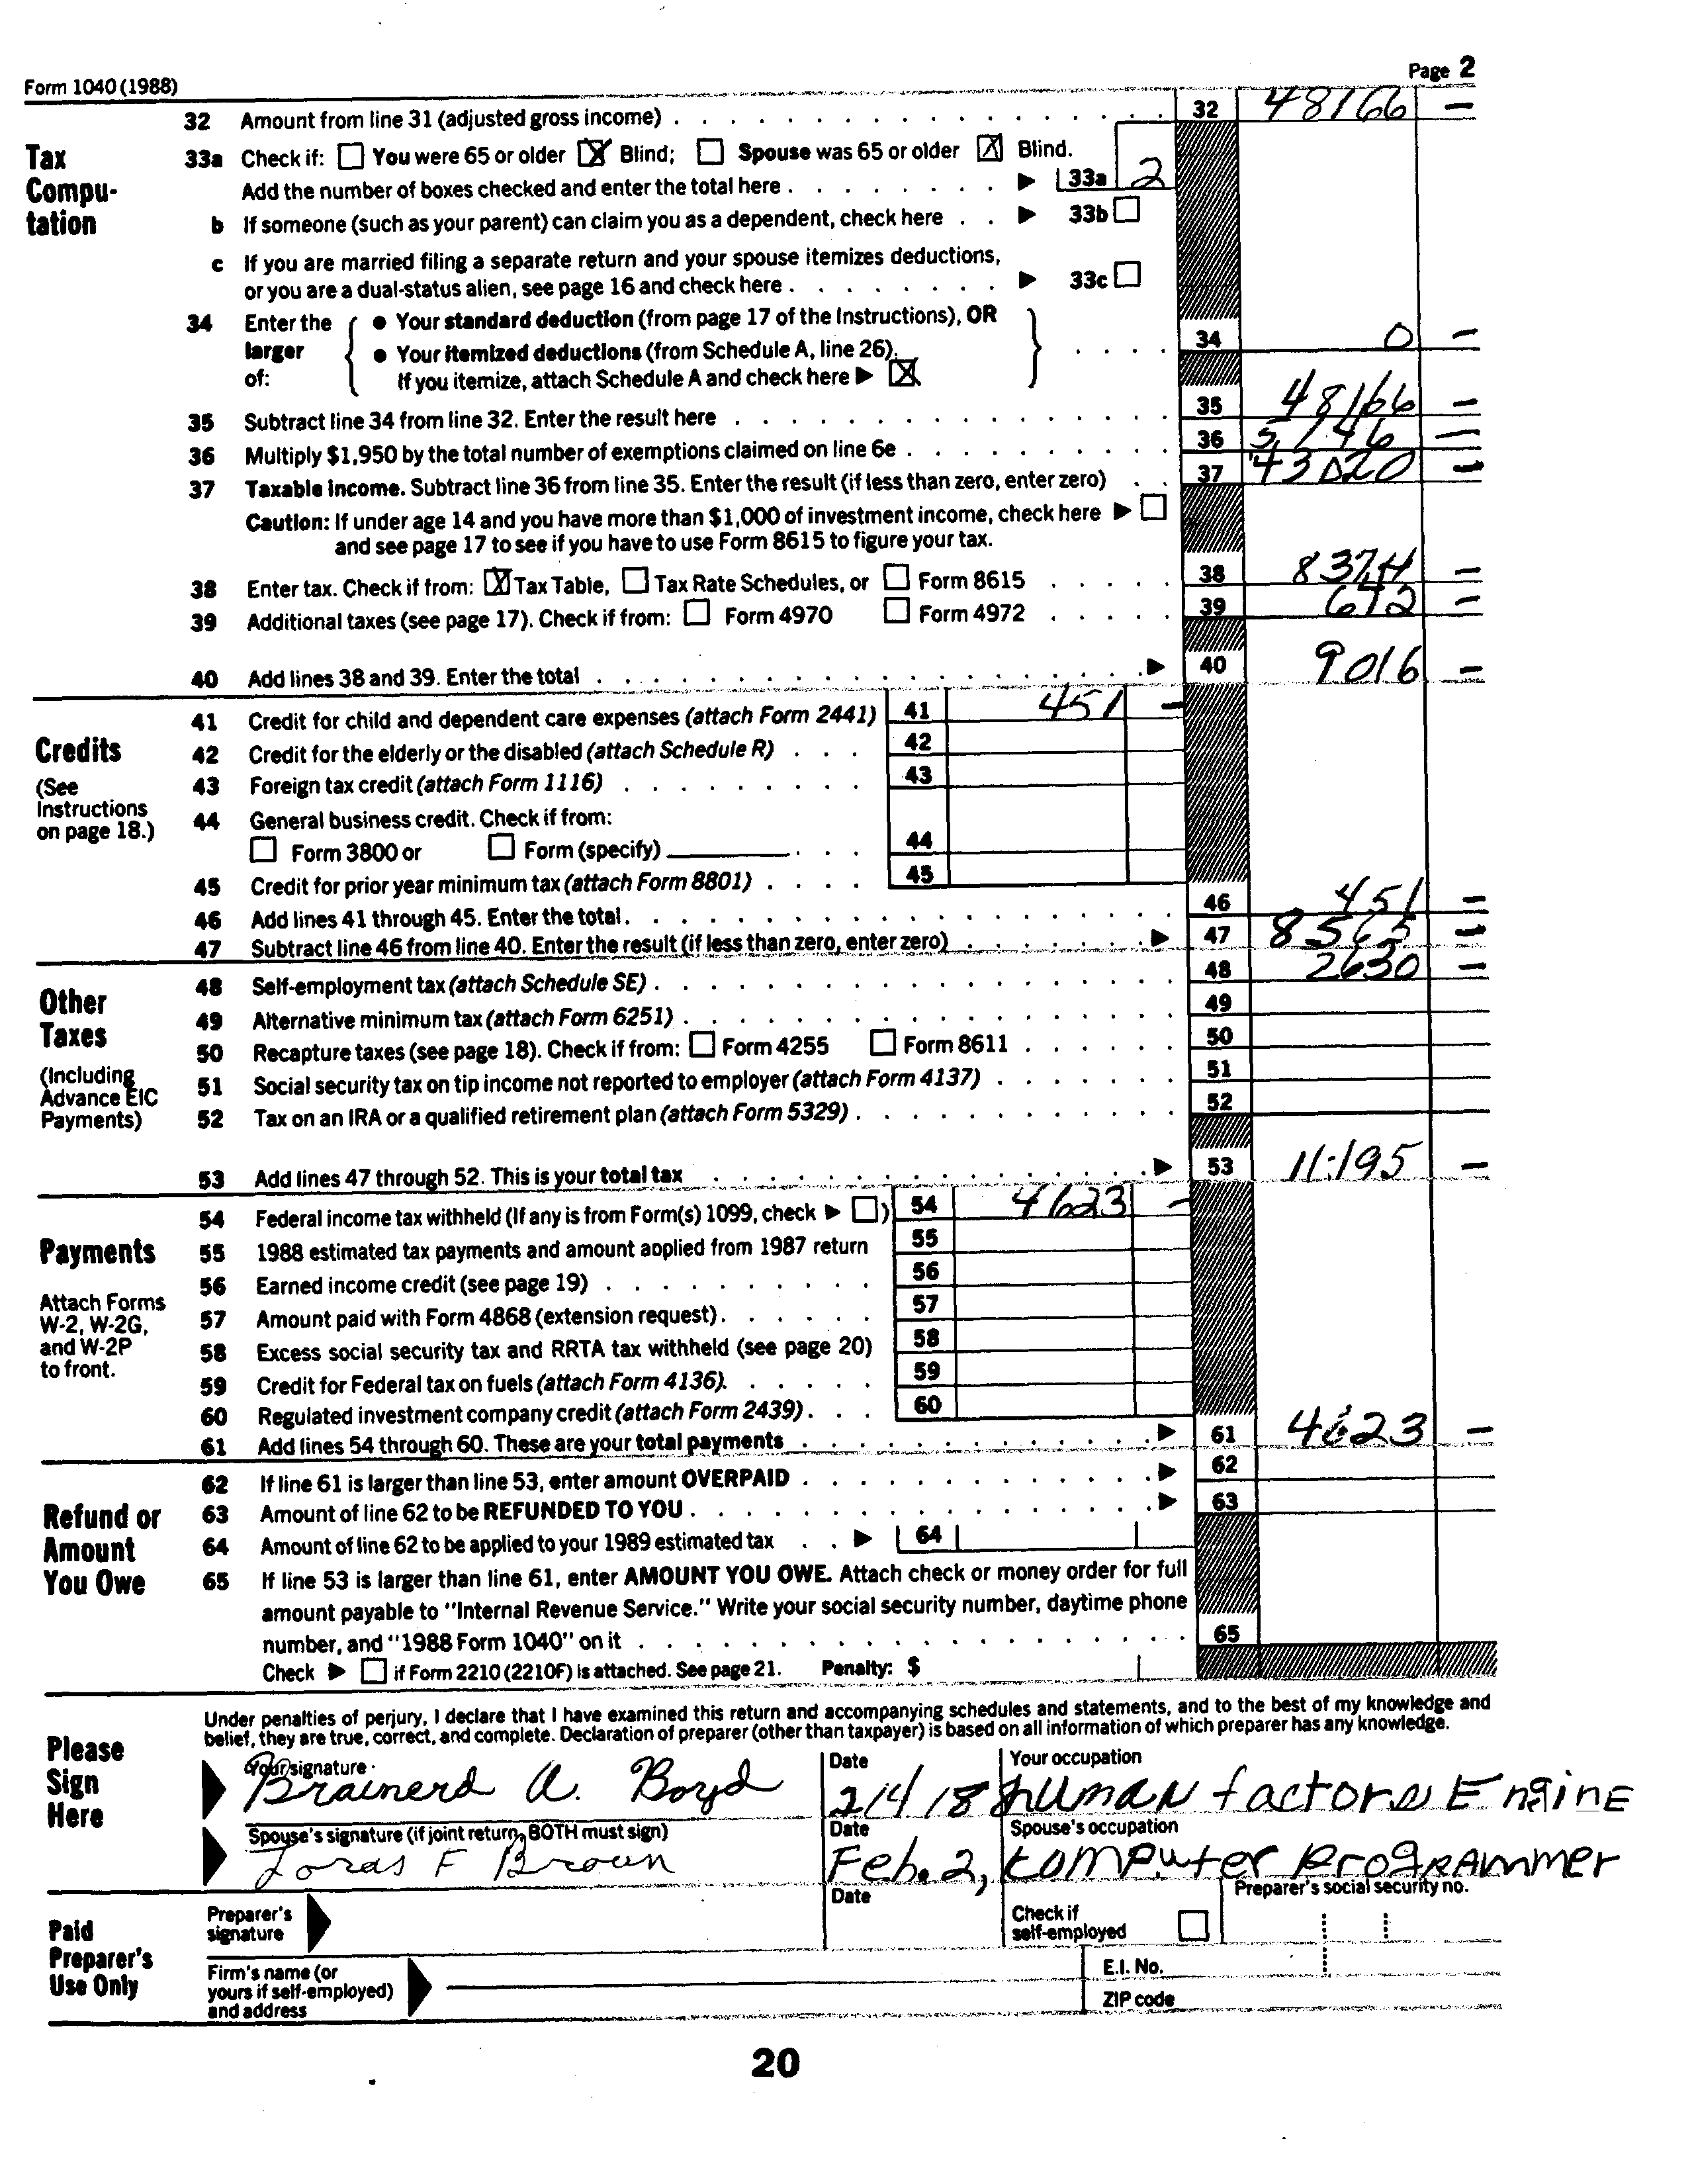 Form 1040 (1988) Page 2
32 Amount from line 31 (adjusted gross income) 32 48166 –
Tax Compu-tation
33a Check if: You were 65 or older X Blind; Spouse was 65 or older X Blind.
Add the number of boxes checked and enter the total here 33a 2
b If someone (such as your parent) can claim you as a dependent, check here 33b
c If you are married filing a separate return and your spouse itemizes deductions,
or you are a dual-status alien, see page 16 and check here 33c
34 Enter the larger of: • Your standard deduction (from page 17 of the Instructions), OR
• Your itemized deductions (from Schedule A, line 26). 34 0 –
If you itemize, attach Schedule A and check here X
35 Subtract line 34 from line 32. Enter the result here 35 48166 –
36 Multiply $1,950 by the total number of exemptions claimed on line 6e 36 5,146 –
37 Taxable income. Subtract line 36 from line 35. Enter the result (if less than zero, enter zero) 37 43020 –
Caution: If under age 14 and you have more than $1,000 of investment income, check here
and see page 17 to see if you have to use Form 8615 to figure your tax.
38 Enter tax. Check if from: X Tax Table, Tax Rate Schedules, or Form 8615 38 8374 –
39 Additional taxes (see page 17). Check if from: Form 4970 Form 4972 39 642 –
40 Add lines 38 and 39. Enter the total 40 9016 –
Credits
(See Instructions on page 18.)
41 Credit for child and dependent care expenses (attach Form 2441) 41 451 –
42 Credit for the elderly or the disabled (attach Schedule R) 42
43 Foreign tax credit (attach Form 1116) 43
44 General business credit. Check if from:
Form 3800 or Form (specify) 44
45 Credit for prior year minimum tax (attach Form 8801) 45
46 Add lines 41 through 45. Enter the total. 46 451 –
47 Subtract line 46 from line 40. Enter the result (if less than zero, enter zero) 47 8565 –
Other Taxes
(Including Advance EIC Payments)
48 Self-employment tax (attach Schedule SE) 48 2630 –
49 Alternative minimum tax (attach Form 6251) 49
50 Recapture taxes (see page 18). Check if from: Form 4255 Form 8611 50
51 Social security tax on tip income not reported to employer (attach Form 4137) 51
52 Tax on an IRA or a qualified retirement plan (attach Form 5329) 52
53 Add lines 47 through 52. This is your total tax 53 11,195 –
Payments
Attach Forms W-2, W-2G, and W-2P to front.
54 Federal income tax withheld (If any is from Form(s) 1099, check ) 54 4623 –
55 1988 estimated tax payments and amount applied from 1987 return 55
56 Earned income credit (see page 19) 56
57 Amount paid with Form 4868 (extension request) 57
58 Excess social security tax and RRTA tax withheld (see page 20) 58
59 Credit for Federal tax on fuels (attach Form 4136). 59
60 Regulated investment company credit (attach Form 2439) 60
61 Add lines 54 through 60. These are your total payments 61 4623 –
Refund or Amount You Owe
62 If line 61 is larger than line 53, enter amount OVERPAID 62
63 Amount of line 62 to be REFUNDED TO YOU 63
64 Amount of line 62 to be applied to your 1989 estimated tax 64
65 If line 53 is larger than line 61, enter AMOUNT YOU OWE. Attach check or money order for full
amount payable to "Internal Revenue Service." Write your social security number, daytime phone
number, and "1988 Form 1040" on it 65
Check if Form 2210 (2210F) is attached. See page 21. Penalty: $
Please Sign Here
Under penalties of perjury, I declare that I have examined this return and accompanying schedules and statements, and to the best of my knowledge and
belief, they are true, correct, and complete. Declaration of preparer (other than taxpayer) is based on all information of which preparer has any knowledge.
Your signature Date Your occupation
Brainerd A. Boyd 2/4/18 human factors Engine
Spouse's signature (if joint return, BOTH must sign) Date Spouse's occupation
Loras F Brown Feb. 2, Computer Programmer
Paid Preparer's Use Only
Preparer's signature Date Check if self-employed Preparer's social security no.
Firm's name (or yours if self-employed) and address E.I. No.
ZIP code
20